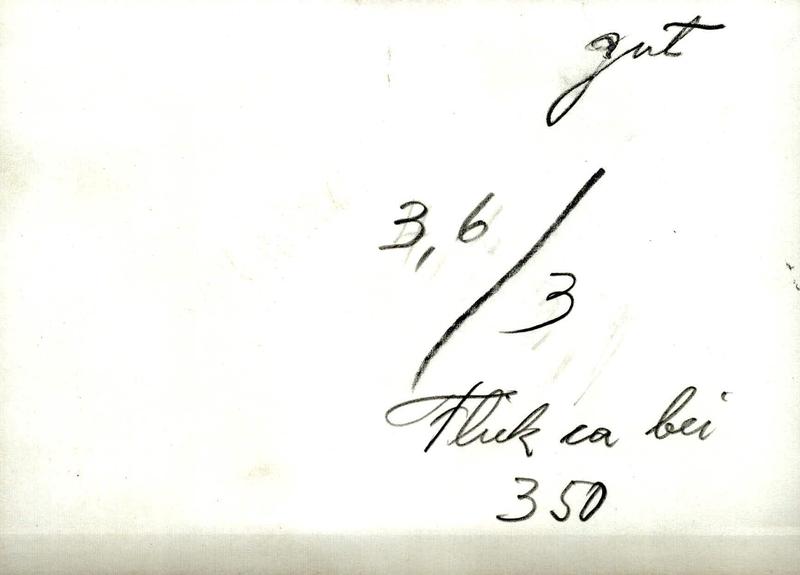 gut
3,6 / 3
Flick ca bei
350